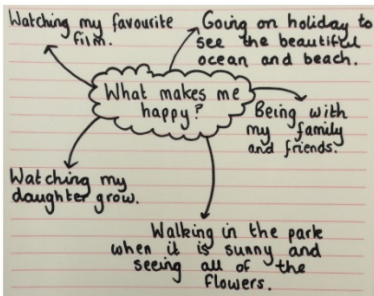 Watching my favourite
film.
Going on holiday to
see the beautiful
ocean and beach.
What makes me
happy?
Being with
my family
and friends.
Watching my
daughter grow.
Walking in the park
when it is sunny and
seeing all of the
flowers.